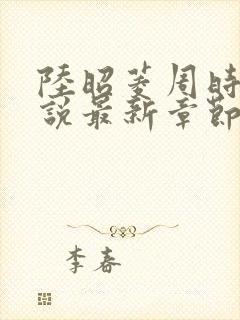 陸昭菱周時
說最新章節
李春